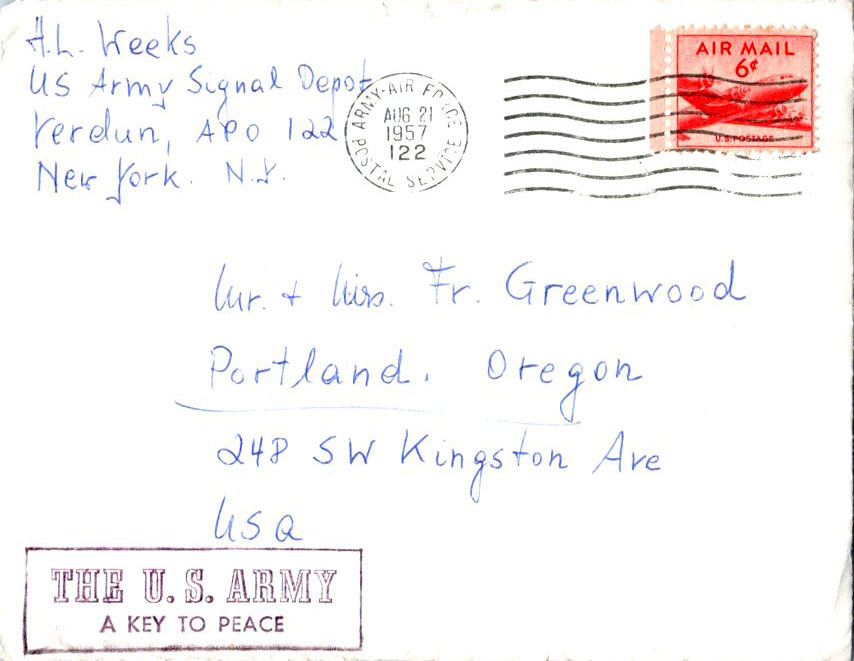 H.L. Weeks
US Army Signal Depot
Verdun, APO 122
New York. N.Y.
ARMY-AIR FORCE
AUG 21
1957
122
POSTAL SERVICE
AIR MAIL
6¢
U.S. POSTAGE
Mr. + Mrs. Fr. Greenwood
Portland. Oregon
248 SW Kingston Ave
USA
THE U.S. ARMY
A KEY TO PEACE